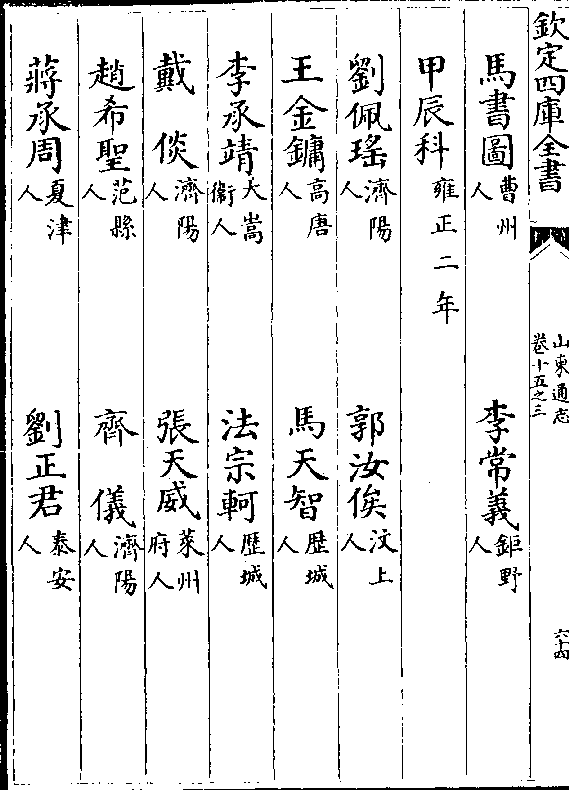 欽定四庫全書
山東通志
卷十五之三
六十四
馬書圖 曹州人 李常義 鉅野人
甲辰科 雍正二年
劉佩瑤 濟陽人 郭汝俟 汶上人
王金鏞 高唐人 馬天智 歷城人
李承靖 大嵩衞人 法宗軻 歷城人
戴倓 濟陽人 張天威 萊州府人
趙希聖 范縣人 齊儀 濟陽人
蔣承周 夏津人 劉正君 泰安人